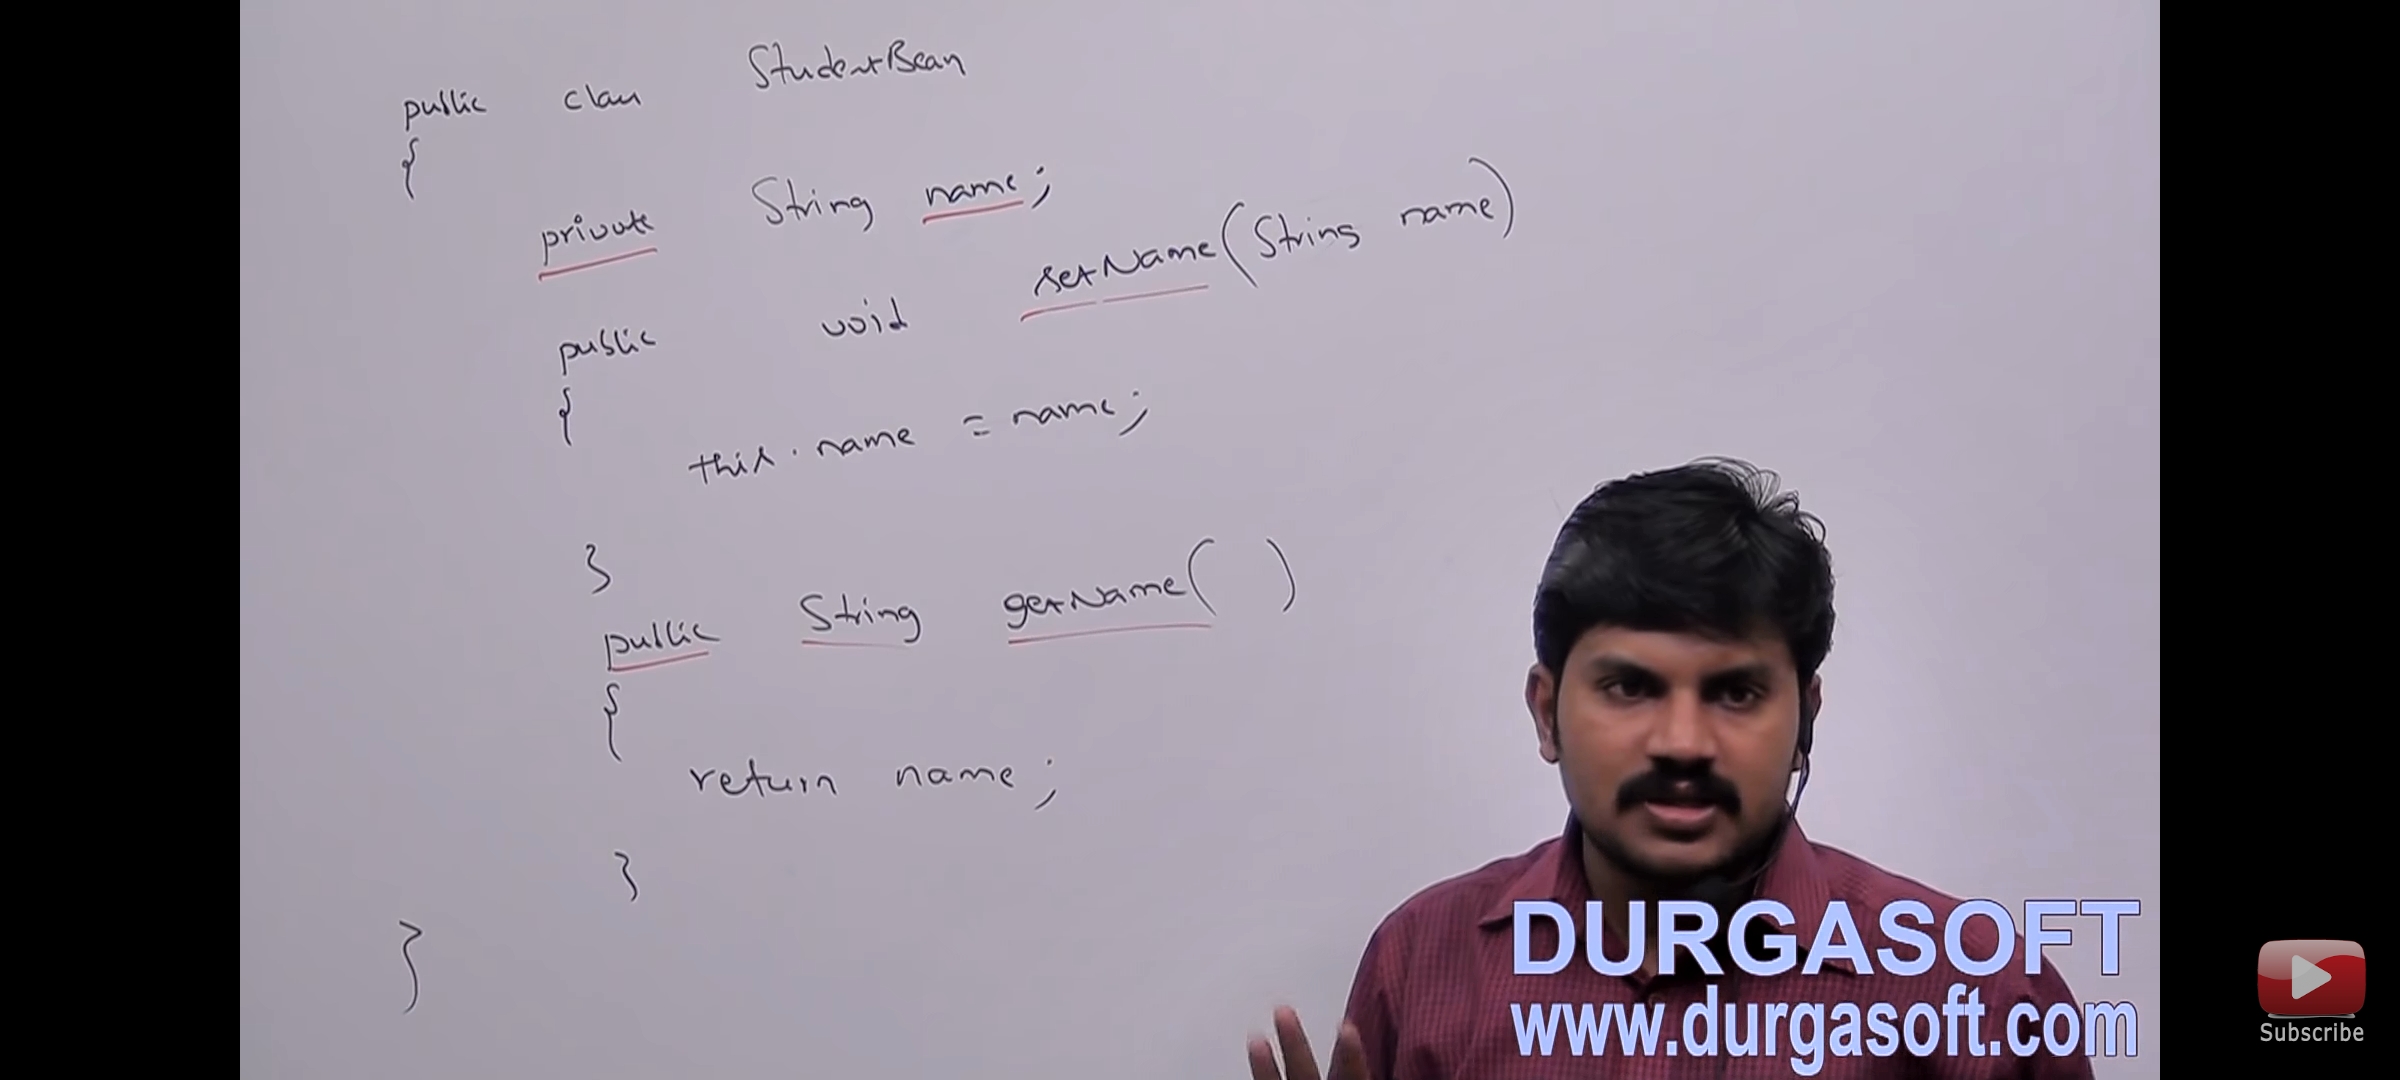 public class StudentBean
{
private String name;
public void setName(String name)
{
this.name = name;
}
public String getName( )
{
return name;
}
}
DURGASOFT
www.durgasoft.com
Subscribe